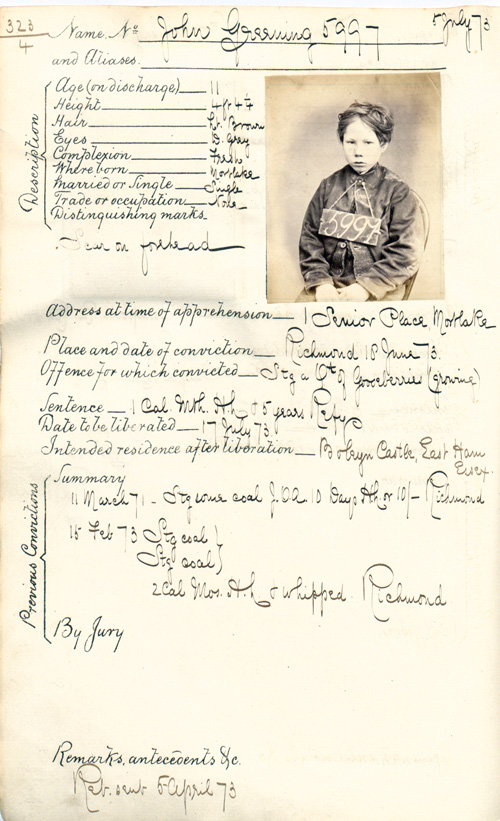 323
4
Name, No John Greening 5997
5 July 73
and Aliases
Description
Age (on discharge) 11
Height 4 ft 4 ½
Hair Lt. Brown
Eyes D. Grey
Complexion Fresh
Where born Mortlake
Married or Single Single
Trade or occupation None
Distinguishing marks
Scar on forehead
5997
Address at time of apprehension 1 Senior Place, Mortlake
Place and date of conviction Richmond 18 June 73.
Offence for which convicted Stg a Qt of Gooseberries (growing)
Sentence 1 Cal. Mth. H.L. & 5 years Refy
Date to be liberated 17 July 73
Intended residence after liberation Boleyn Castle, East Ham
Essex.
Previous Convictions
Summary
11 March 71 - Stg some coal 10 Days H.L. or 10/- Richmond
15 Feb 73 Stg coal }
Stg coal }
2 Cal Mos. H.L. & whipped. Richmond
By Jury
Remarks, antecedents &c.
sent 5 April 73